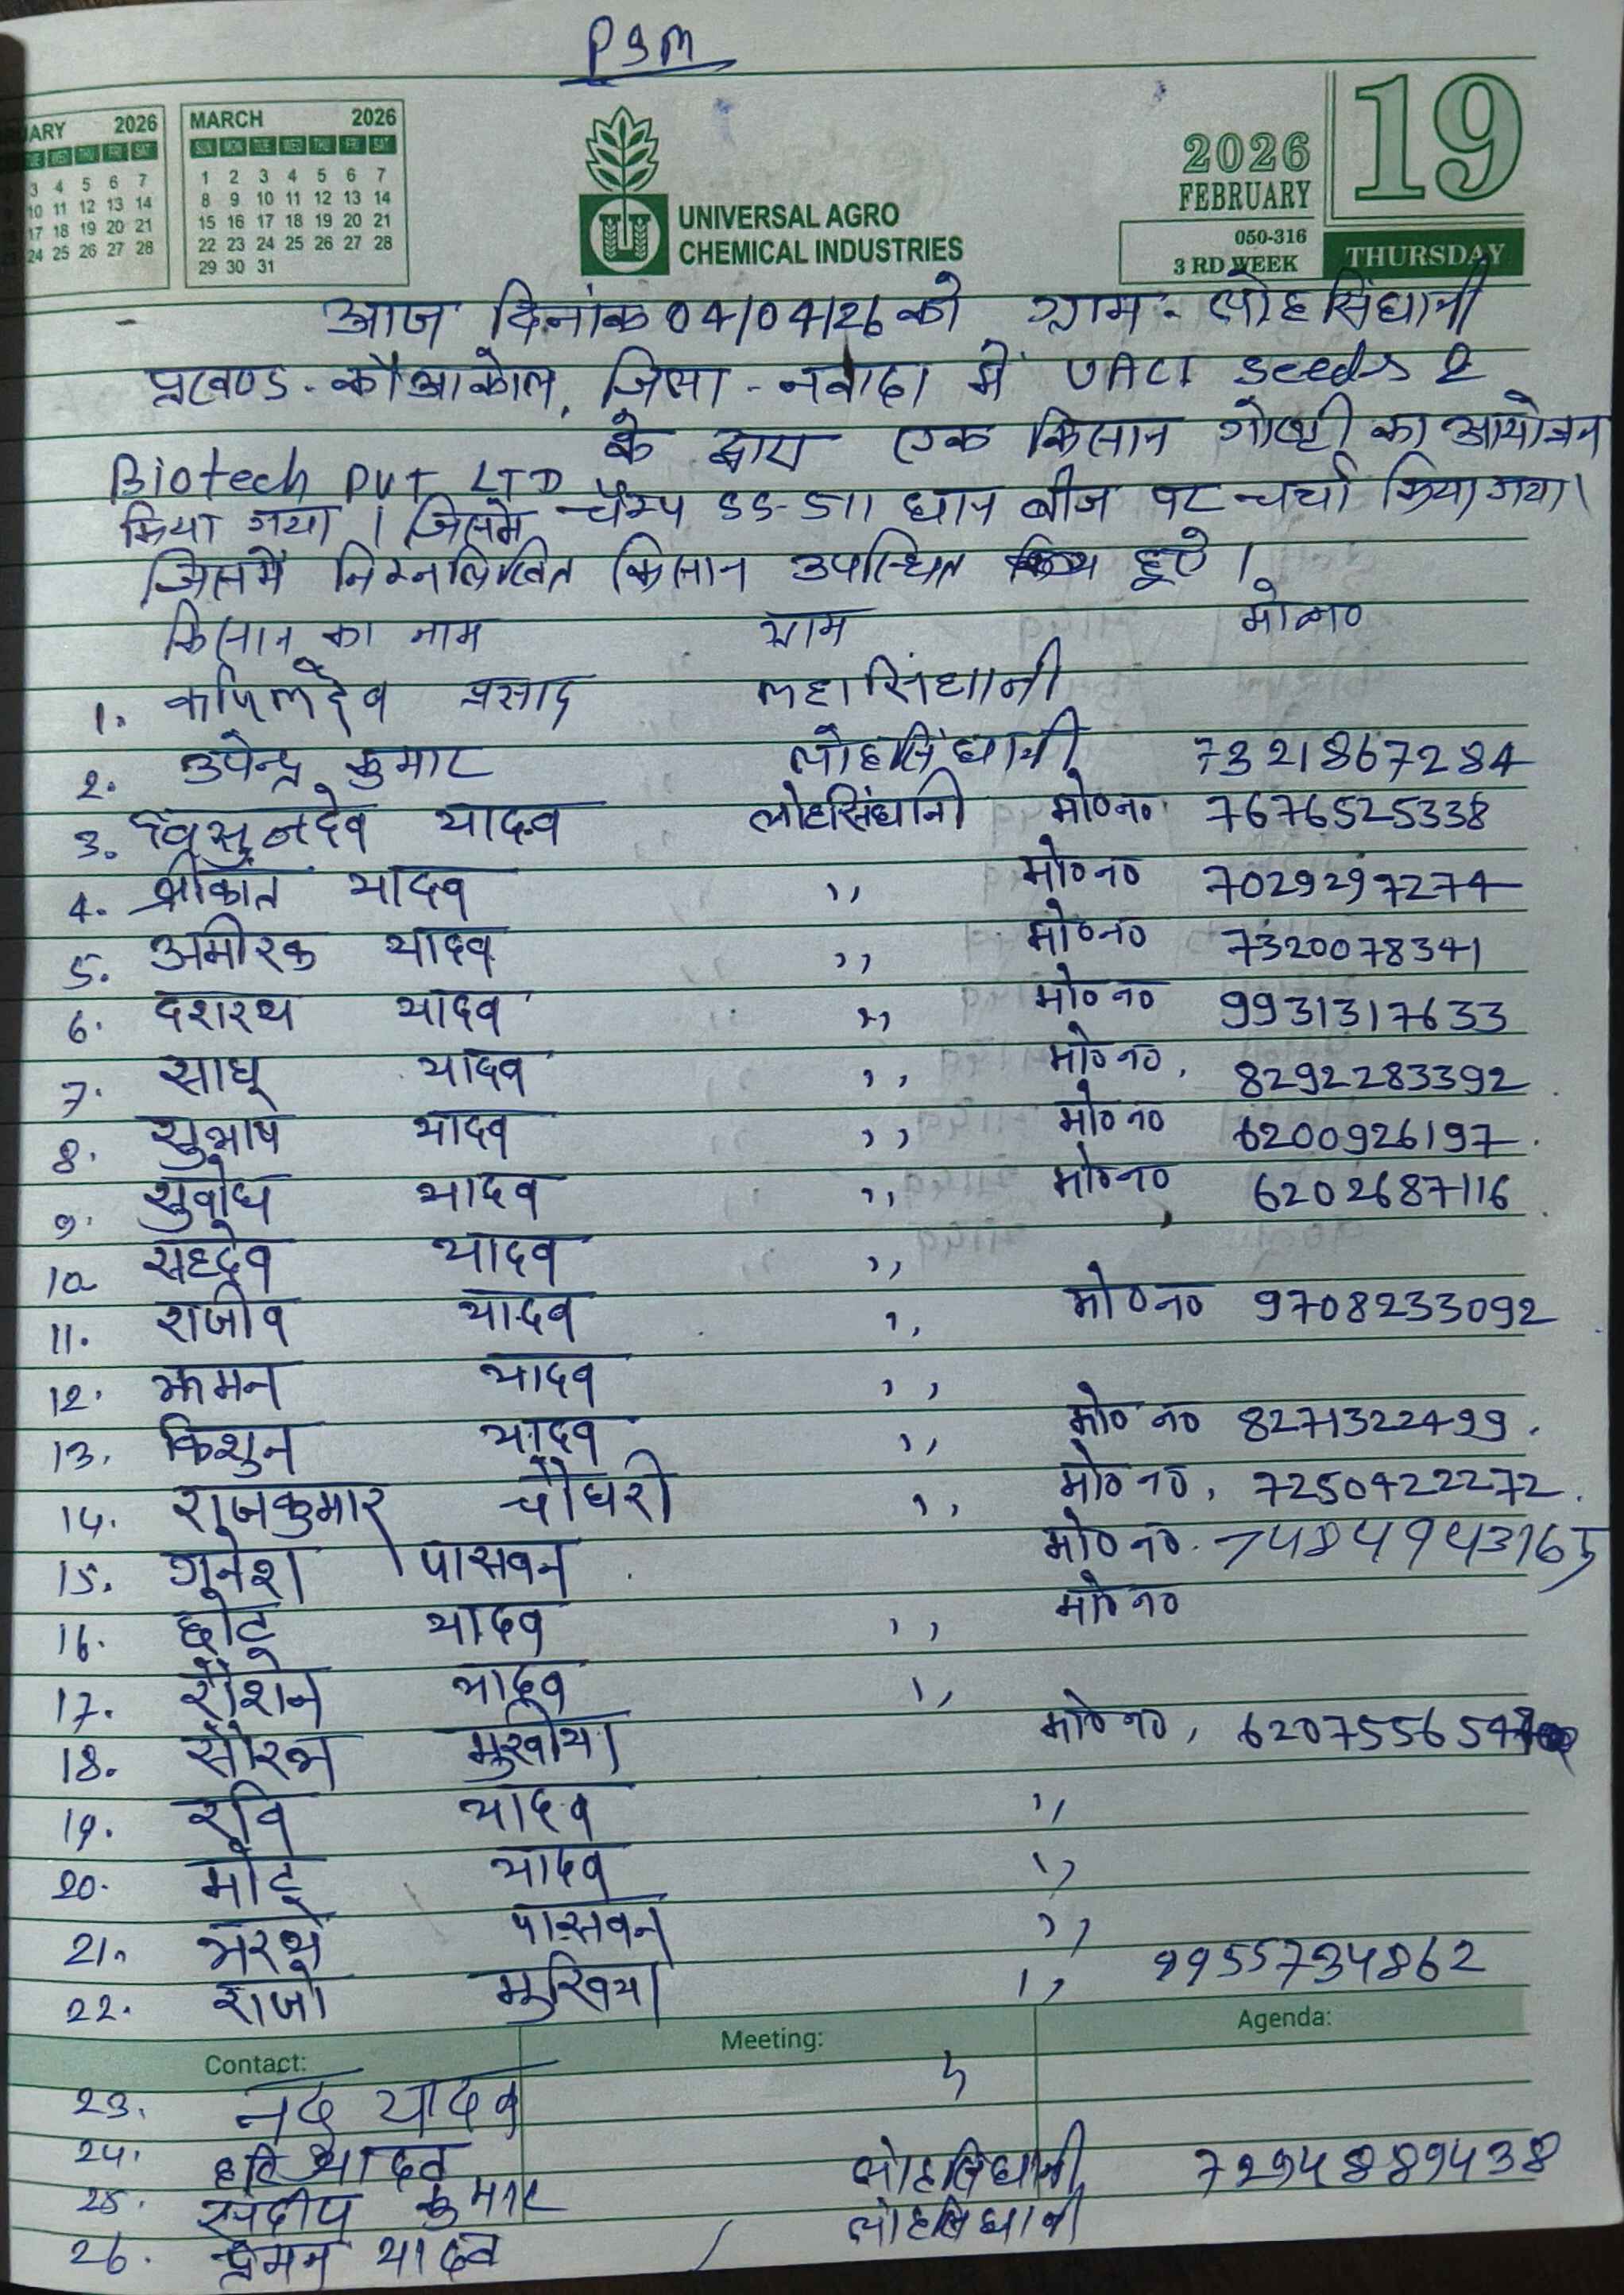 PSM
UARY 2026
TUE WED THU FRI SAT
3 4 5 6 7
10 11 12 13 14
17 18 19 20 21
24 25 26 27 28
MARCH 2026
SUN MON TUE WED THU FRI SAT
1 2 3 4 5 6 7
8 9 10 11 12 13 14
15 16 17 18 19 20 21
22 23 24 25 26 27 28
29 30 31
UNIVERSAL AGRO
CHEMICAL INDUSTRIES
2026
FEBRUARY
19
050-316
3 RD WEEK
THURSDAY
आज दिनांक 04/04/26 को ग्राम - लोहसिंघानी
प्रखण्ड - कौआकोल, जिला - नवादा में UACI Seeds &
Biotech PVT LTD के द्वारा एक किसान गोष्ठी का आयोजन
किया गया । जिसमें चैम्प SS-511 धान बीज पर चर्चा किया गया ।
जिसमें निम्नलिखित किसान उपस्थित हुए ।
किसान का नाम ग्राम मो०न०
1. कपिलदेव प्रसाद लहासिंघानी
2. उपेन्द्र कुमार लोहसिंघानी 7321867284
3. विसुनदेव यादव लोहसिंघानी मो०न० 7676525338
4. श्रीकांत यादव ,, मो०न० 7029297274
5. अमीरक यादव ,, मो०न० 7320078341
6. दशरथ यादव ,, मो०न० 9931317633
7. साधू यादव ,, मो०न०. 8292283392
8. सुभाष यादव ,, मो०न० 6200926197
9. सुबोध यादव ,, मो०न० 6202687116
10 सहदेव यादव ,,
11. राजीव यादव ,, मो०न० 9708233092
12. भमन यादव ,,
13. किशुन यादव ,, मो० न० 8271322499.
14. राजकुमार चौधरी ,, मो० न०, 7250422272.
15. गुनेश पासवन मो० न०. 7484943165
16. छोटू यादव ,, मो० न०
17. रौशन यादव ,,
18. सौरभ मुखीया मो० न०, 620755654
19. रवि यादव ,,
20. मोटू यादव ,,
21. भरथ पासवन ,,
22. राजो मुखिया ,, 9955734862
Contact: Meeting: Agenda:
23. नंद यादव ,,
24. हरि यादव लोहसिंघानी 7294889438
25. संदीप कुमार लोहसिंघानी
26. प्रेमन यादव